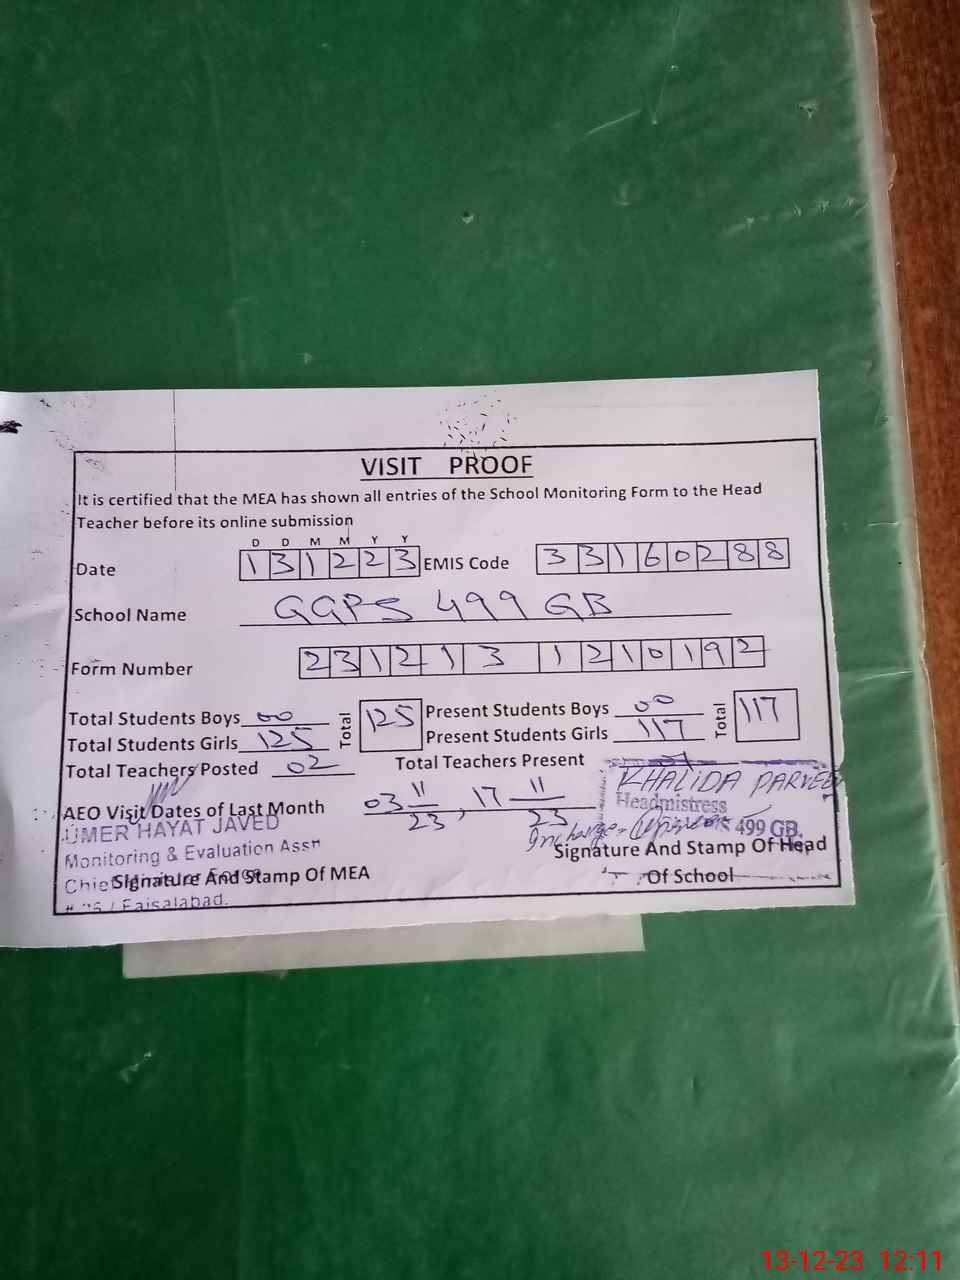 VISIT PROOF
It is certified that the MEA has shown all entries of the School Monitoring Form to the Head
Teacher before its online submission
D D M M Y Y
Date 131223 EMIS Code 33160288
School Name GGPS 499 GB
Form Number 231213 1210192
Total Students Boys 00 Total 125 Present Students Boys 00 Total 117
Total Students Girls 125 Present Students Girls 117
Total Teachers Posted 02 Total Teachers Present
KHALIDA PARVEEN
AEO Visit Dates of Last Month 03 11/23, 17 11/23 Headmistress
UMER HAYAT JAVED Incharge 499 GB.
Monitoring & Evaluation Asstt Signature And Stamp Of Head
Chief Minister Force Signature And Stamp Of MEA Of School
Faisalabad.
13-12-23 12:11